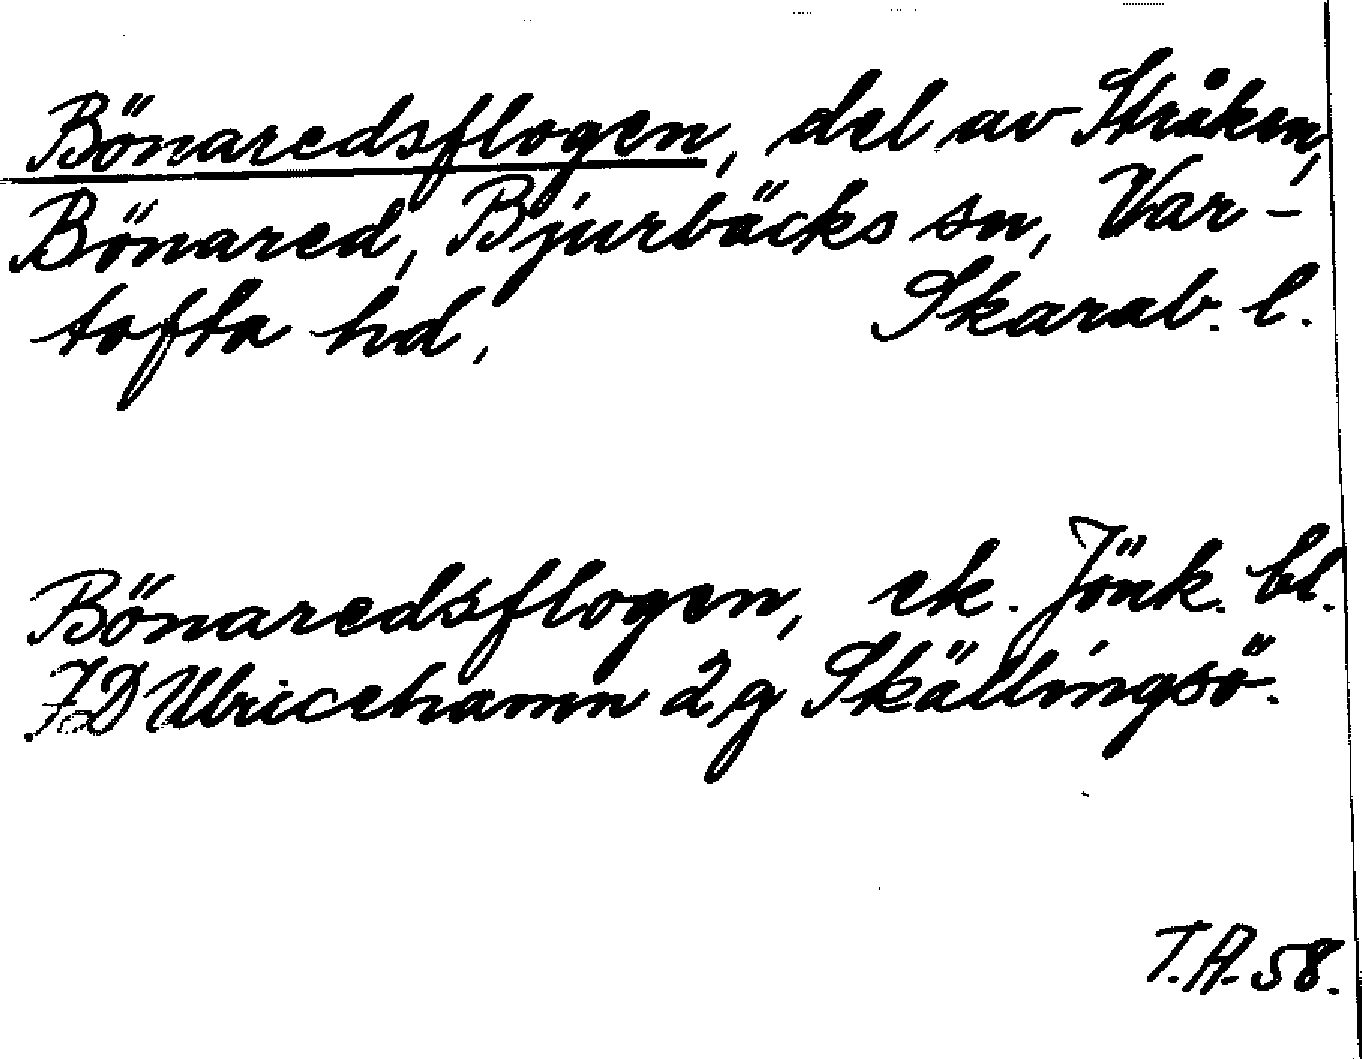 Bönaredsflogen, del av Stråken,
Bönared, Bjurbäcks sn, Var-
tofta hd, Skarab. l.
Bönaredsflogen, ek. Jönk. bl.
7D Ulricehamn 2g Skällingsö.
T.A. 58.